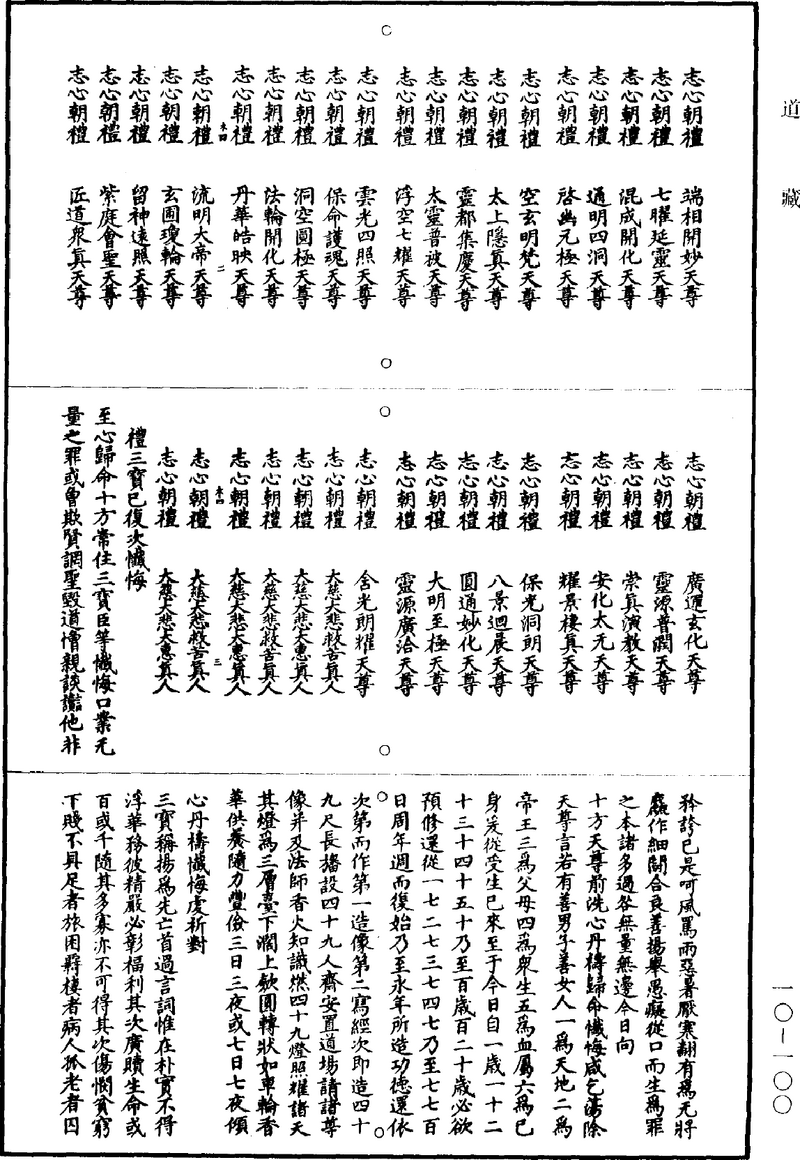 道藏
志心朝禮 端相開妙天尊
志心朝禮 七曜延靈天尊
志心朝禮 混成開化天尊
志心朝禮 通明四洞天尊
志心朝禮 啓幽元極天尊
志心朝禮 空玄明梵天尊
志心朝禮 太上隱真天尊
志心朝禮 靈都集慶天尊
志心朝禮 太靈普被天尊
志心朝禮 浮空七耀天尊
志心朝禮 雲光四照天尊
志心朝禮 保命護魂天尊
志心朝禮 洞空圓極天尊
志心朝禮 法輪開化天尊
志心朝禮 丹華皓映天尊
志心朝禮 流明大帝天尊
志心朝禮 玄圃瓊輪天尊
志心朝禮 留神遠照天尊
志心朝禮 紫庭會聖天尊
志心朝禮 匠道衆真天尊
志心朝禮 廣運玄化天尊
志心朝禮 靈源普潤天尊
志心朝禮 崇真演教天尊
志心朝禮 安化太元天尊
志心朝禮 耀景棲真天尊
志心朝禮 保光洞朗天尊
志心朝禮 八景迴晨天尊
志心朝禮 圓通妙化天尊
志心朝禮 大明至極天尊
志心朝禮 靈源廣洽天尊
志心朝禮 含光朗耀天尊
志心朝禮 大慈大悲救苦真人
志心朝禮 大慈大悲大惠真人
志心朝禮 大慈大悲救苦真人
志心朝禮 大慈大悲大惠真人
志心朝禮 大慈大悲救苦真人
志心朝禮 大慈大悲大惠真人
禮三寶已復次懺悔
至心歸命十方常住三寶臣等懺悔口業无
量之罪或曾欺賢調聖毀道憎親談讟他非
矜誇己是呵風罵雨惡暑厭寒翻有爲无將
麤作細鬭合良善揚舉愚癡從口而生爲罪
之本諸多過咎無量無邊今日向
十方天尊前洗心丹禱歸命懺悔咸乞蕩除
天尊言若有善男子善女人一爲天地二爲
帝王三爲父母四爲衆生五爲血屬六爲己
身爰從受生已來至于今日自一歲一十二
十三十四十五十乃至百歲百二十歲必欲
預修還從一七二七三七四七乃至七七百
日周年週而復始乃至永年所造功德還依
次第而作第一造像第二寫經次即造四十
九尺長旛設四十九人齋安置道場請諸尊
像并及法師香火知識燃四十九燈照耀諸天
其燈爲三層臺下濶上歛圓轉狀如車輪香
華供養隨力豐儉三日三夜或七日七夜傾
心丹禱懺悔虔祈對
三寶稱揚爲先亡首過言詞惟在朴實不得
浮華務彼精嚴必彰福利其次廣贖生命或
百或千隨其多寡亦不可得其次傷憫貧窮
下賤不具足者旅困羇棲者病人孤老者囚
一〇一一〇〇